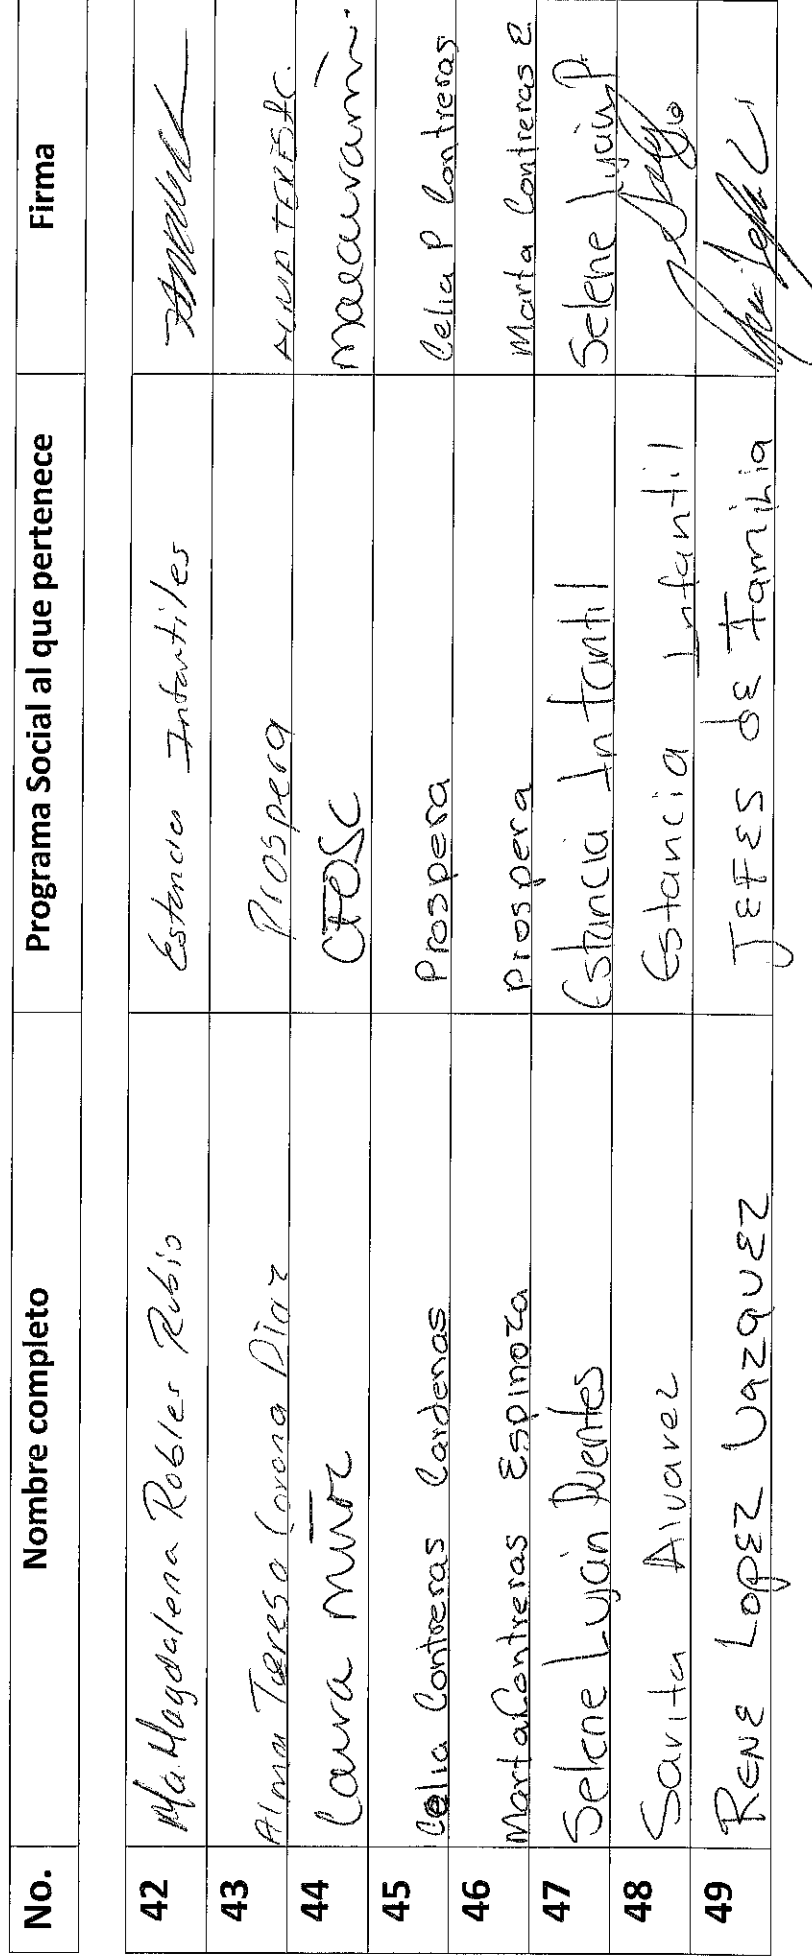 No. Nombre completo Programa Social al que pertenece Firma
42 Ma. Magdalena Robles Rubio Estancias Infantiles
43 Alma Teresa Corona Diaz Prospera
44 Laura muñoz
45 Celia Contreras Cardenas Prospera Celia P Contreras
46 Marta Contreras Espinoza Prospera Marta Contreras E.
47 Selene Luján Puentes Estancia Infantil Selene Luján P.
48 Sarita Alvarez Estancia Infantil
49 RENE LOPEZ VAZQUEZ JEFES dE Familia